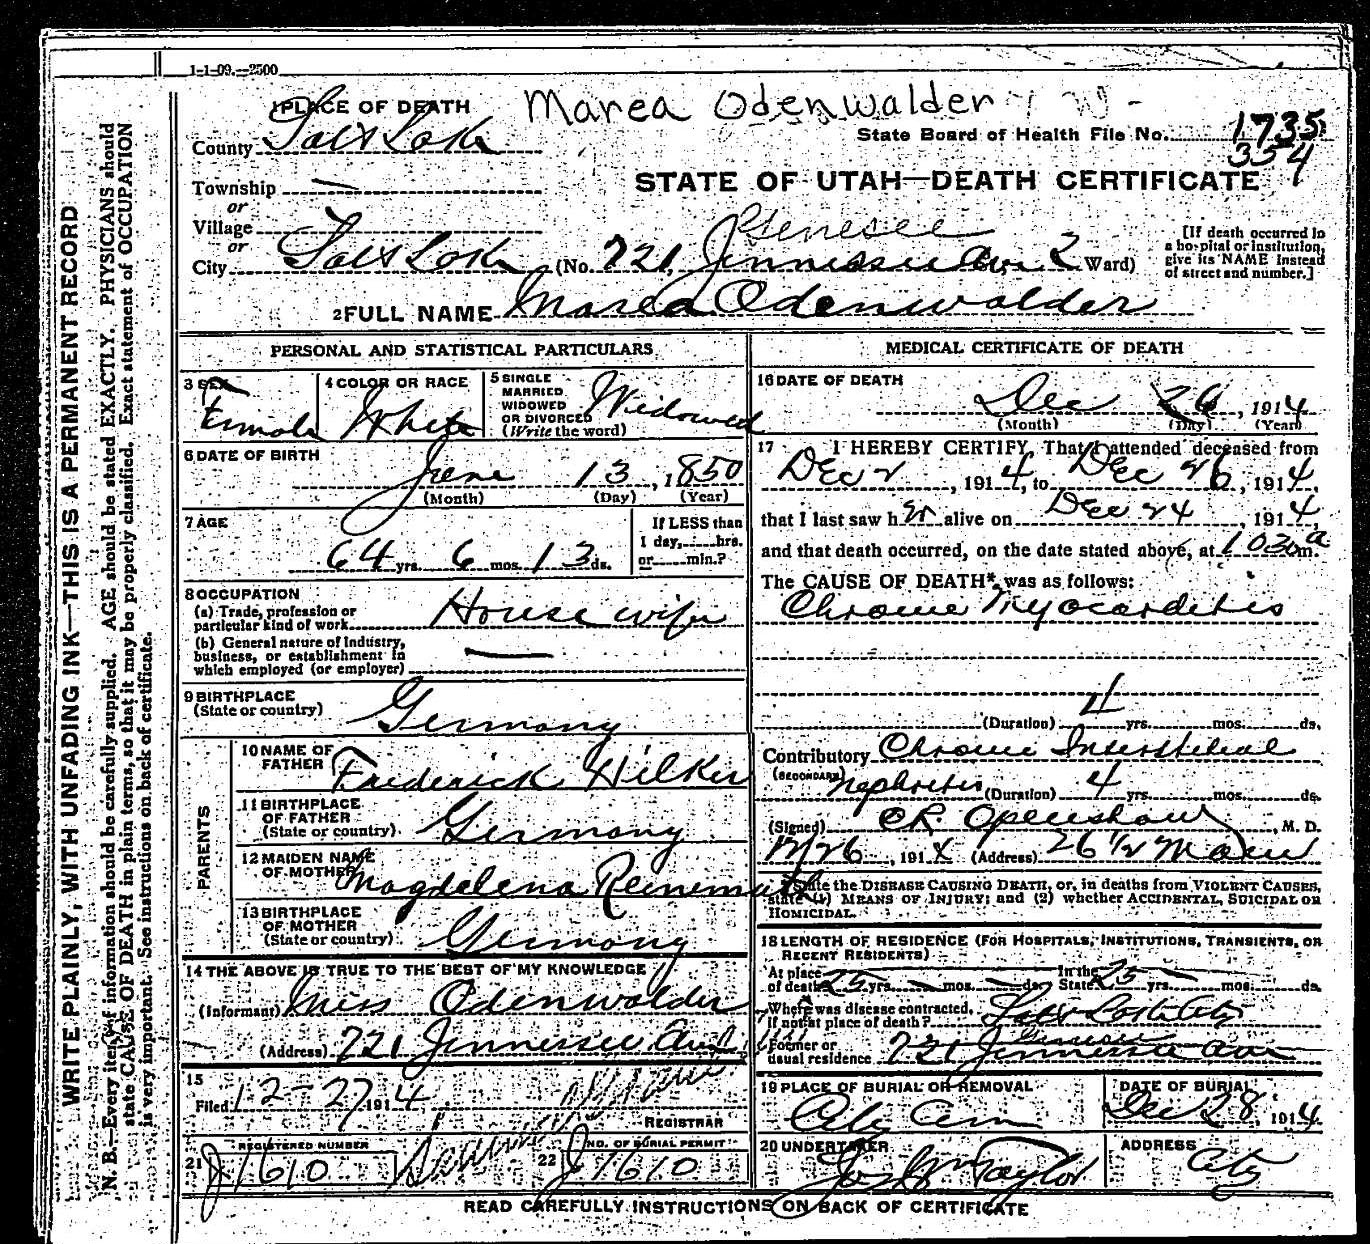 1-1-09.—2500
1 PLACE OF DEATH Marea Odenwalder W -
State Board of Health File No. 1735
354
County Salt Lake
STATE OF UTAH—DEATH CERTIFICATE
Township —
or
Village
or
City Salt Lake (No. 721, Jennessee Ave 2 Ward)
Genesee
[If death occurred in a hospital or institution, give its NAME instead of street and number.]
2 FULL NAME Marea Odenwalder
PERSONAL AND STATISTICAL PARTICULARS
3 SEX Female
4 COLOR OR RACE White
5 SINGLE MARRIED WIDOWED OR DIVORCED (Write the word) Widowed
6 DATE OF BIRTH
June 13, 1850
(Month) (Day) (Year)
7 AGE
64 yrs. 6 mos. 13 ds.
If LESS than 1 day, hrs. or min.?
8 OCCUPATION
(a) Trade, profession or particular kind of work House wife
(b) General nature of Industry, business, or establishment in which employed (or employer) —
9 BIRTHPLACE (State or country) Germany
PARENTS
10 NAME OF FATHER Frederick Hilker
11 BIRTHPLACE OF FATHER (State or country) Germany
12 MAIDEN NAME OF MOTHER Magdelena Reinemuth
13 BIRTHPLACE OF MOTHER (State or country) Germany
14 THE ABOVE IS TRUE TO THE BEST OF MY KNOWLEDGE
(Informant) Miss Odenwalder
(Address) 721 Jennessee Ave
15
Filed 12-27 1914
REGISTRAR
REGISTERED NUMBER
21 J1610
NO. OF BURIAL PERMIT
22 J1610
MEDICAL CERTIFICATE OF DEATH
16 DATE OF DEATH
Dec 26, 1914
(Month) (Day) (Year)
17 I HEREBY CERTIFY, That I attended deceased from
Dec 2, 1914, to Dec 26, 1914,
that I last saw h er alive on Dec 24, 1914,
and that death occurred, on the date stated above, at 1030 a m.
The CAUSE OF DEATH* was as follows:
Chronic Myocarditis
(Duration) 4 yrs. mos. ds.
Contributory Chronic Interstitial
(SECONDARY) Nephritis (Duration) 4 yrs. mos. ds.
(Signed) CR Openshaw, M. D.
12/26, 1914 (Address) 26 1/2 Main
*State the DISEASE CAUSING DEATH, or, in deaths from VIOLENT CAUSES, state (1) MEANS OF INJURY; and (2) whether ACCIDENTAL, SUICIDAL OR HOMICIDAL.
18 LENGTH OF RESIDENCE (FOR HOSPITALS, INSTITUTIONS, TRANSIENTS, OR RECENT RESIDENTS)
At place of death 25 yrs. — mos. — ds. In the State 25 yrs. — mos. ds.
Where was disease contracted, if not at place of death? Salt Lake City
Former or usual residence 721 Jennessee Ave
Genesee
19 PLACE OF BURIAL OR REMOVAL
City Cem
DATE OF BURIAL
Dec 28, 1914
20 UNDERTAKER
Jos Wm Taylor
ADDRESS
City
READ CAREFULLY INSTRUCTIONS ON BACK OF CERTIFICATE
WRITE PLAINLY, WITH UNFADING INK—THIS IS A PERMANENT RECORD
N. B.—Every item of information should be carefully supplied. AGE should be stated EXACTLY. PHYSICIANS should
state CAUSE OF DEATH in plain terms, so that it may be properly classified. Exact statement of OCCUPATION
is very important. See instructions on back of certificate.